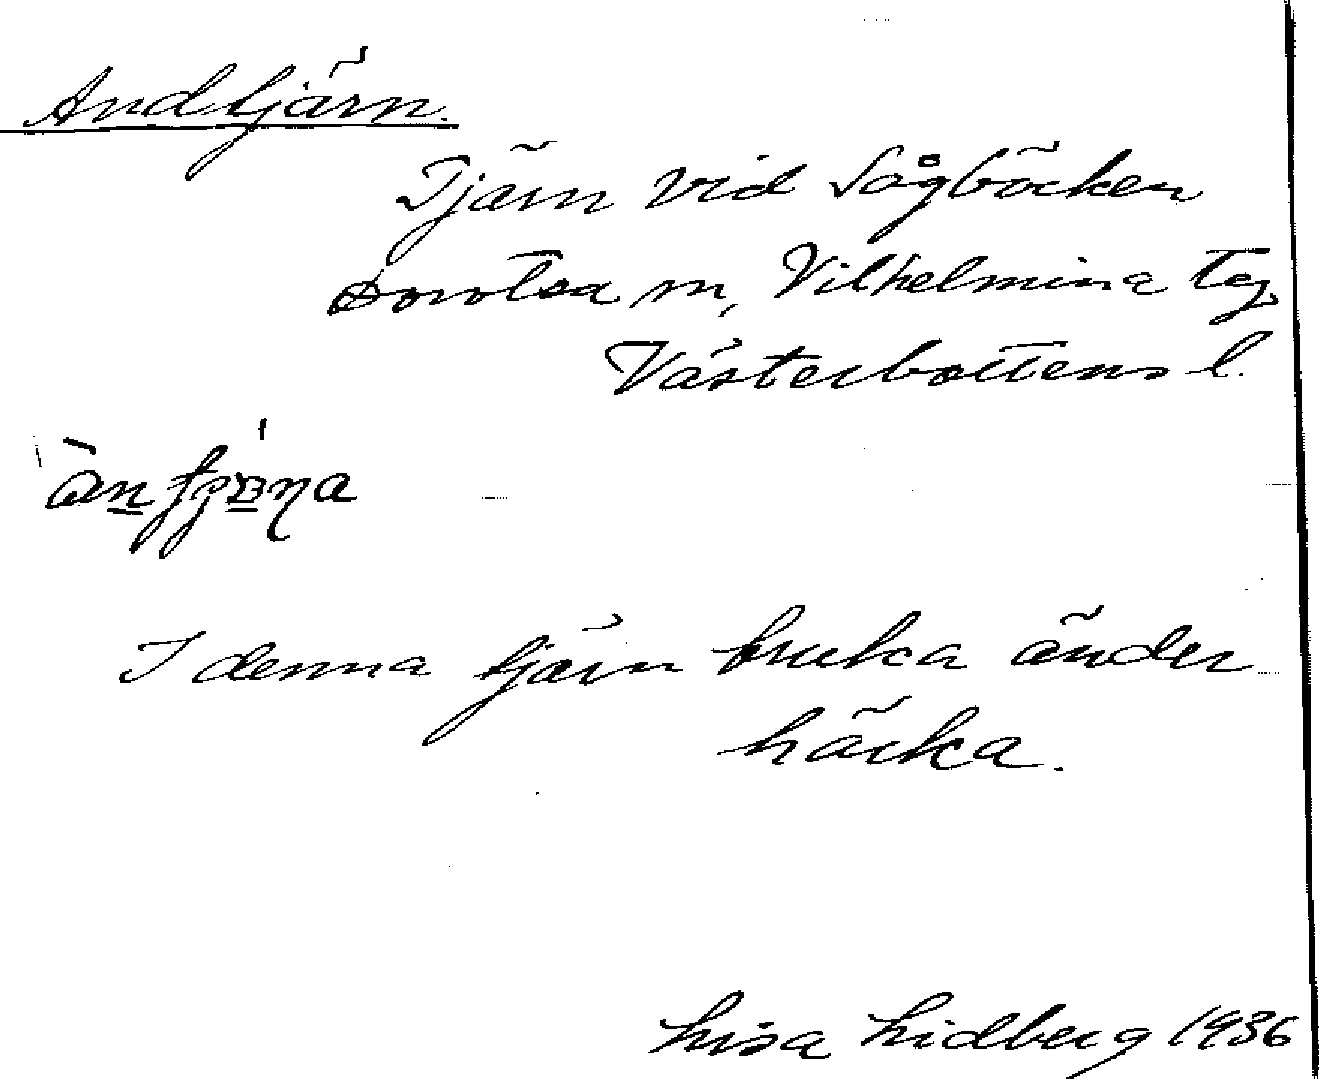 Andtjärn.
Tjärn vid Sågbäcken
Dorotea sn, Vilhelmina tg,
Västerbottens l.
I denna tjärn bruka änder
häcka.
Lisa Lidberg 1936